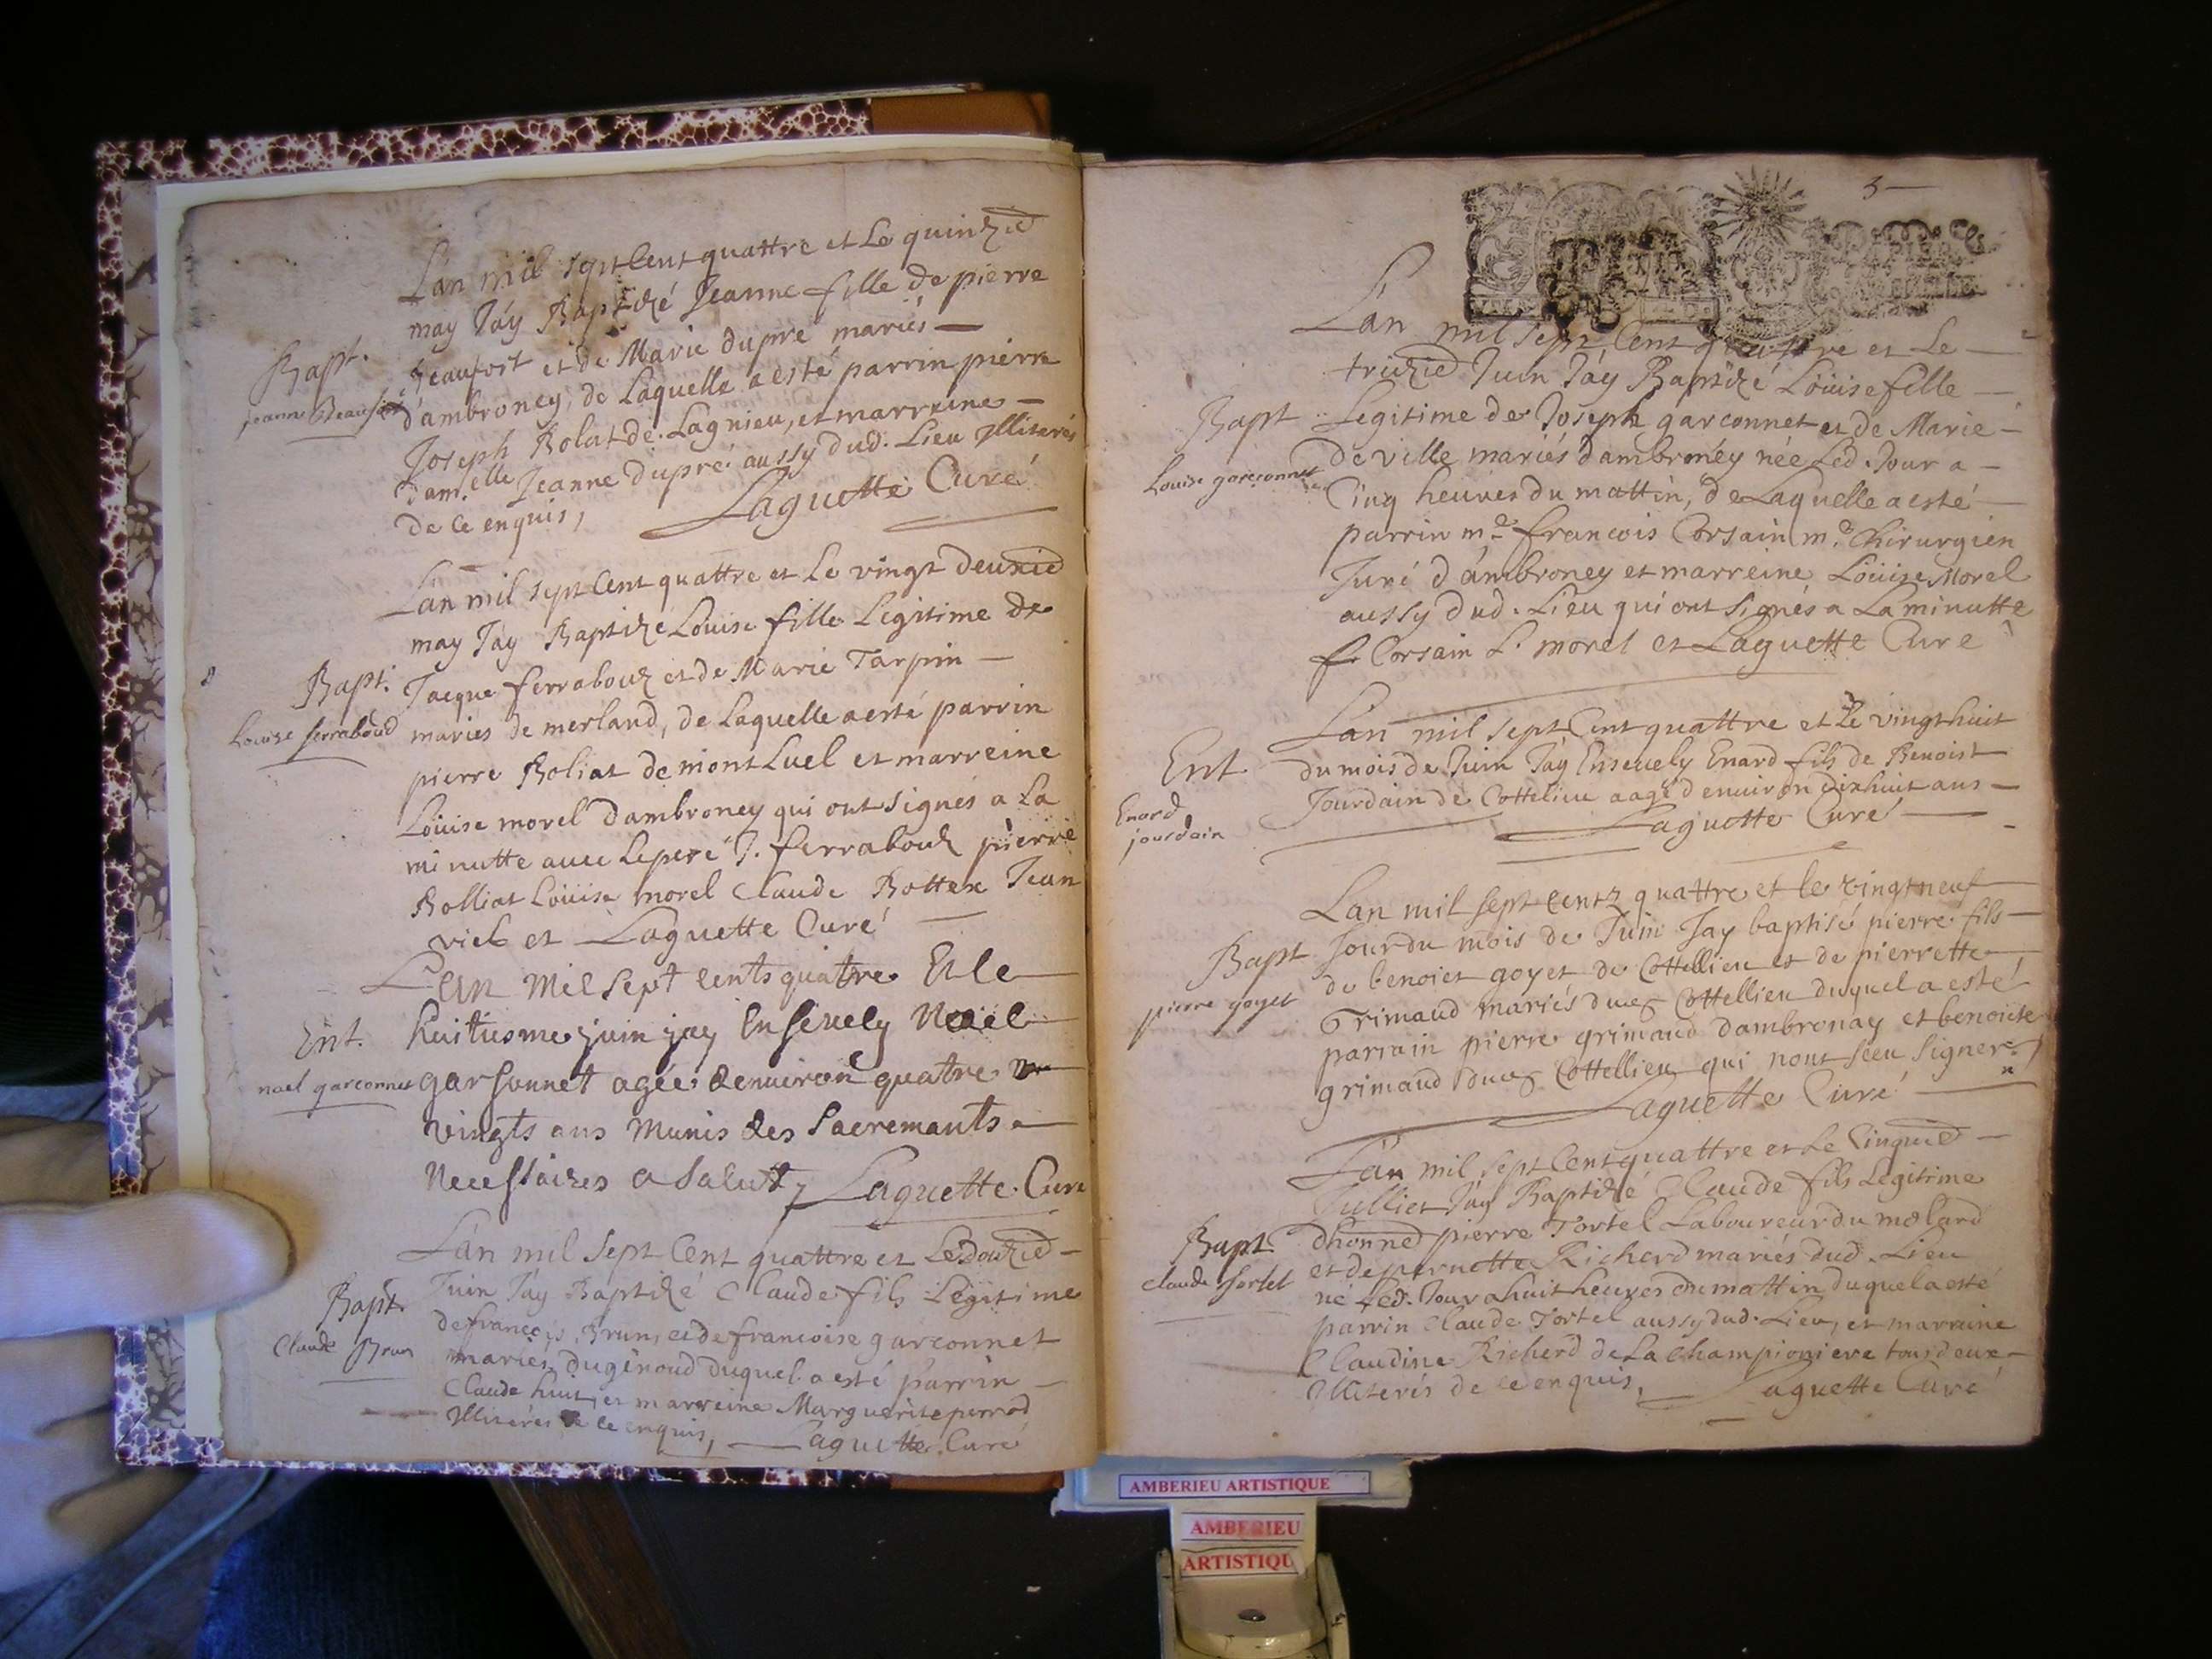 L'an mil sept Cent quattre et Le quinzie
may J'ay Baptizé Jeanne fille de pierre
Bapt. Beaufort et de Marie dupré mariés
jeanne Beaufort d'ambroney, de Laquelle a esté parrin pierre
Joseph Rolat de Lagnieu, et marreine
dam.elle Jeanne dupré aussy dud. Lieu Illiterés
de ce enquis, Laguette Curé
L'an mil sept Cent quattre et Le vingt deuxie
may J'ay Baptizé Louise fille Legitime de
Bapt. Jacque ferrabouz et de Marie Tarpin
Louise ferraboud mariés de merland, de Laquelle a esté parrin
pierre Boliat de montLuel et marreine
Loüise morel d'ambroney qui ont signés a La
minutte avec Le pere J. ferrabouz pierre
Bolliat Loüise morel Claude Bottex Jean
viel et Laguette Curé
L'An Mil Sept cents quatre Et le
Ent. huitiesme juin jay Ensevely Noael
nael garconnet garsonnet agée denviron quatre
vingts ans Munis des Sacremants
Necessaires a Salut, Laguette Curé
L'an mil Sept Cent quattre et Le douzie
Bapt. Juin J'ay Baptizé Claude fils Legitime
Claude Brun de francois Brun, et de francoise garconnet
mariés du genoud duquel a esté parrin
Claude huit, et marreine Marguerite perrod
Illiterés de ce enquis, Laguette Curé
3
L'an mil Sept Cent quattre et Le
treizie Juin J'ay Baptizé Loüise fille
Bapt Legitime de Joseph garconnet et de Marie
Louise garconnet deville mariés d'ambronéy née Led. Jour a
Cinq heures du mattin, de Laquelle a esté
parrin me francois Corsain me Chirurgien
Juré d'ambroney et marreine Loüise Morel
aussy dud. Lieu qui ont signés a La minutte
f. Corsain L. morel et Laguette Curé
L'an mil Sept Cent quattre et Le vingt huit
Ent. du mois de Juin J'ay Ensevely Enard fils de Benoist
Enard Jourdain de Cottelieu aagé d'environ dixhuit ans
jourdain Laguette Curé
Lan mil sept centz quattre et le vingt neuf
Bapt Jour du mois de Juin Jay baptisé pierre fils
pierre goyet de benoiet goyet de Cottellieu et de pierrette
Grimaud mariés dud Cottellieu duquel a esté
parrain pierre grimaud dambronay et benoite
grimaud dud Cottellieu qui nont sceu signer
Laguette Curé
L'an mil Sept Cent quattre et Le Cinquie
Julliet J'ay Baptizé Claude fils Legitime
Bapt. d'honne pierre Tortel Laboureur du molard
Claude tortel et de pernette Richerd mariés dud. Lieu
né Led. Jour a huit heures du mattin duquel a esté
parrin Claude Tortel aussy dud. Lieu, et marraine
Claudine Richerd de La Championiere tous deux
Illiterés de ce enquis, Laguette Curé
AMBERIEU ARTISTIQUE
AMBERIEU
ARTISTIQU